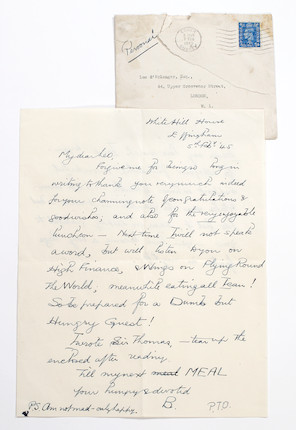 Personal
Leo d'Erlanger, Esq.,
44, Upper Grosvenor Street,
LONDON,
W. 1.
White Hill House
Effingham
My dear Leo,
Forgive me for being so long in
writing to thank you very much indeed
for your charming note of congratulations &
good wishes; and also for the very enjoyable
luncheon — Next time I will not speak
a word, but will listen to you on
High Finance, & Wings on Flying Round
the World, meanwhile eating all I can!
So be prepared for a Dumb but
Hungry Guest!
I wrote Sir Thomas, — tear up the
enclosed after reading.
Till my next meal MEAL
Your hungry & devoted
B.
P.S. Am not mad - only happy.
P.T.O.